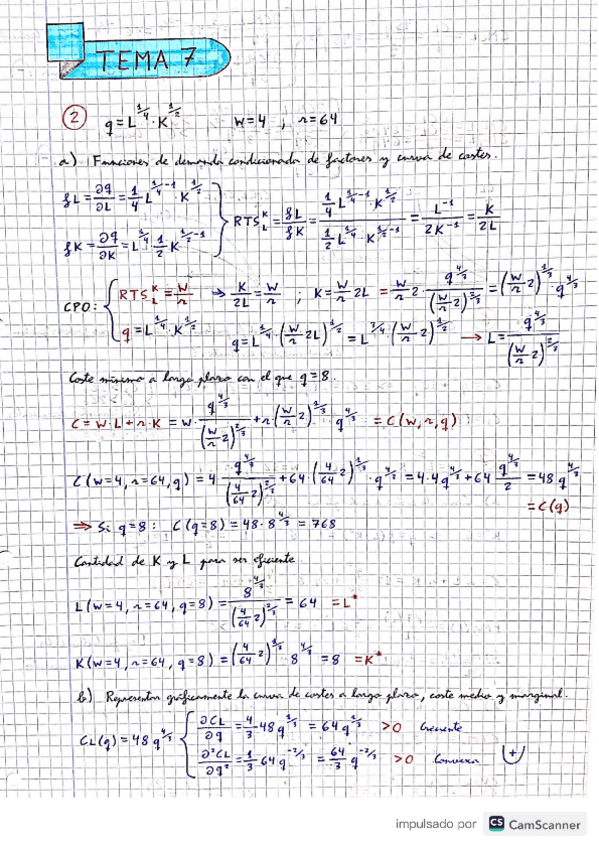 TEMA 7
② q = L^{1/4} · K^{1/2}    w=4 ; r=64
a) Funciones de demanda condicionada de factores y curva de costes.
fL = ∂q/∂L = 1/4 L^{1/4-1} · K^{1/2}
fK = ∂q/∂K = L^{1/4} · 1/2 K^{1/2-1}
RTS^K_L = fL/fK = (1/4 L^{1/4-1} · K^{1/2})/(1/2 L^{1/4} · K^{1/2-1}) = L^{-1}/2K^{-1} = K/2L
CPO: { RTS^K_L = w/r → K/2L = w/r ; K = w/r 2L = w/r 2 · q^{4/3}/(w/r 2)^{2/3} = (w/r 2)^{1/3} · q^{4/3}
q = L^{1/4} · K^{1/2}    q = L^{1/4} · (w/r 2L)^{1/2} = L^{3/4} (w/r 2)^{1/2} → L = q^{4/3}/(w/r 2)^{2/3}
Coste mínimo a largo plazo con el que q=8.
C = w·L + r·K = w · q^{4/3}/(w/r 2)^{2/3} + r (w/r 2)^{1/3} · q^{4/3} = C(w,r,q)
C(w=4, r=64, q) = 4 · q^{4/3}/(4/64 2)^{2/3} + 64 · (4/64 2)^{1/3} · q^{4/3} = 4·4q^{4/3} + 64 q^{4/3}/2 = 48q^{4/3}
= C(q)
⇒ Si q=8: C(q=8) = 48·8^{4/3} = 768
Cantidad de K y L para ser eficiente
L(w=4, r=64, q=8) = 8^{4/3}/(4/64 2)^{2/3} = 64 = L*
K(w=4, r=64, q=8) = (4/64 2)^{1/3} · 8^{4/3} = 8 = K*
b) Representar gráficamente la curva de costes a largo plazo, coste medio y marginal.
CL(q) = 48q^{4/3} { ∂CL/∂q = 4/3 · 48q^{1/3} = 64q^{1/3} > 0 Creciente
∂²CL/∂q² = 1/3 64q^{-2/3} = 64/3 q^{-2/3} > 0 Convexa (+)
impulsado por CS CamScanner